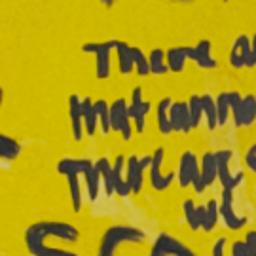 There a
that canno
There are
we